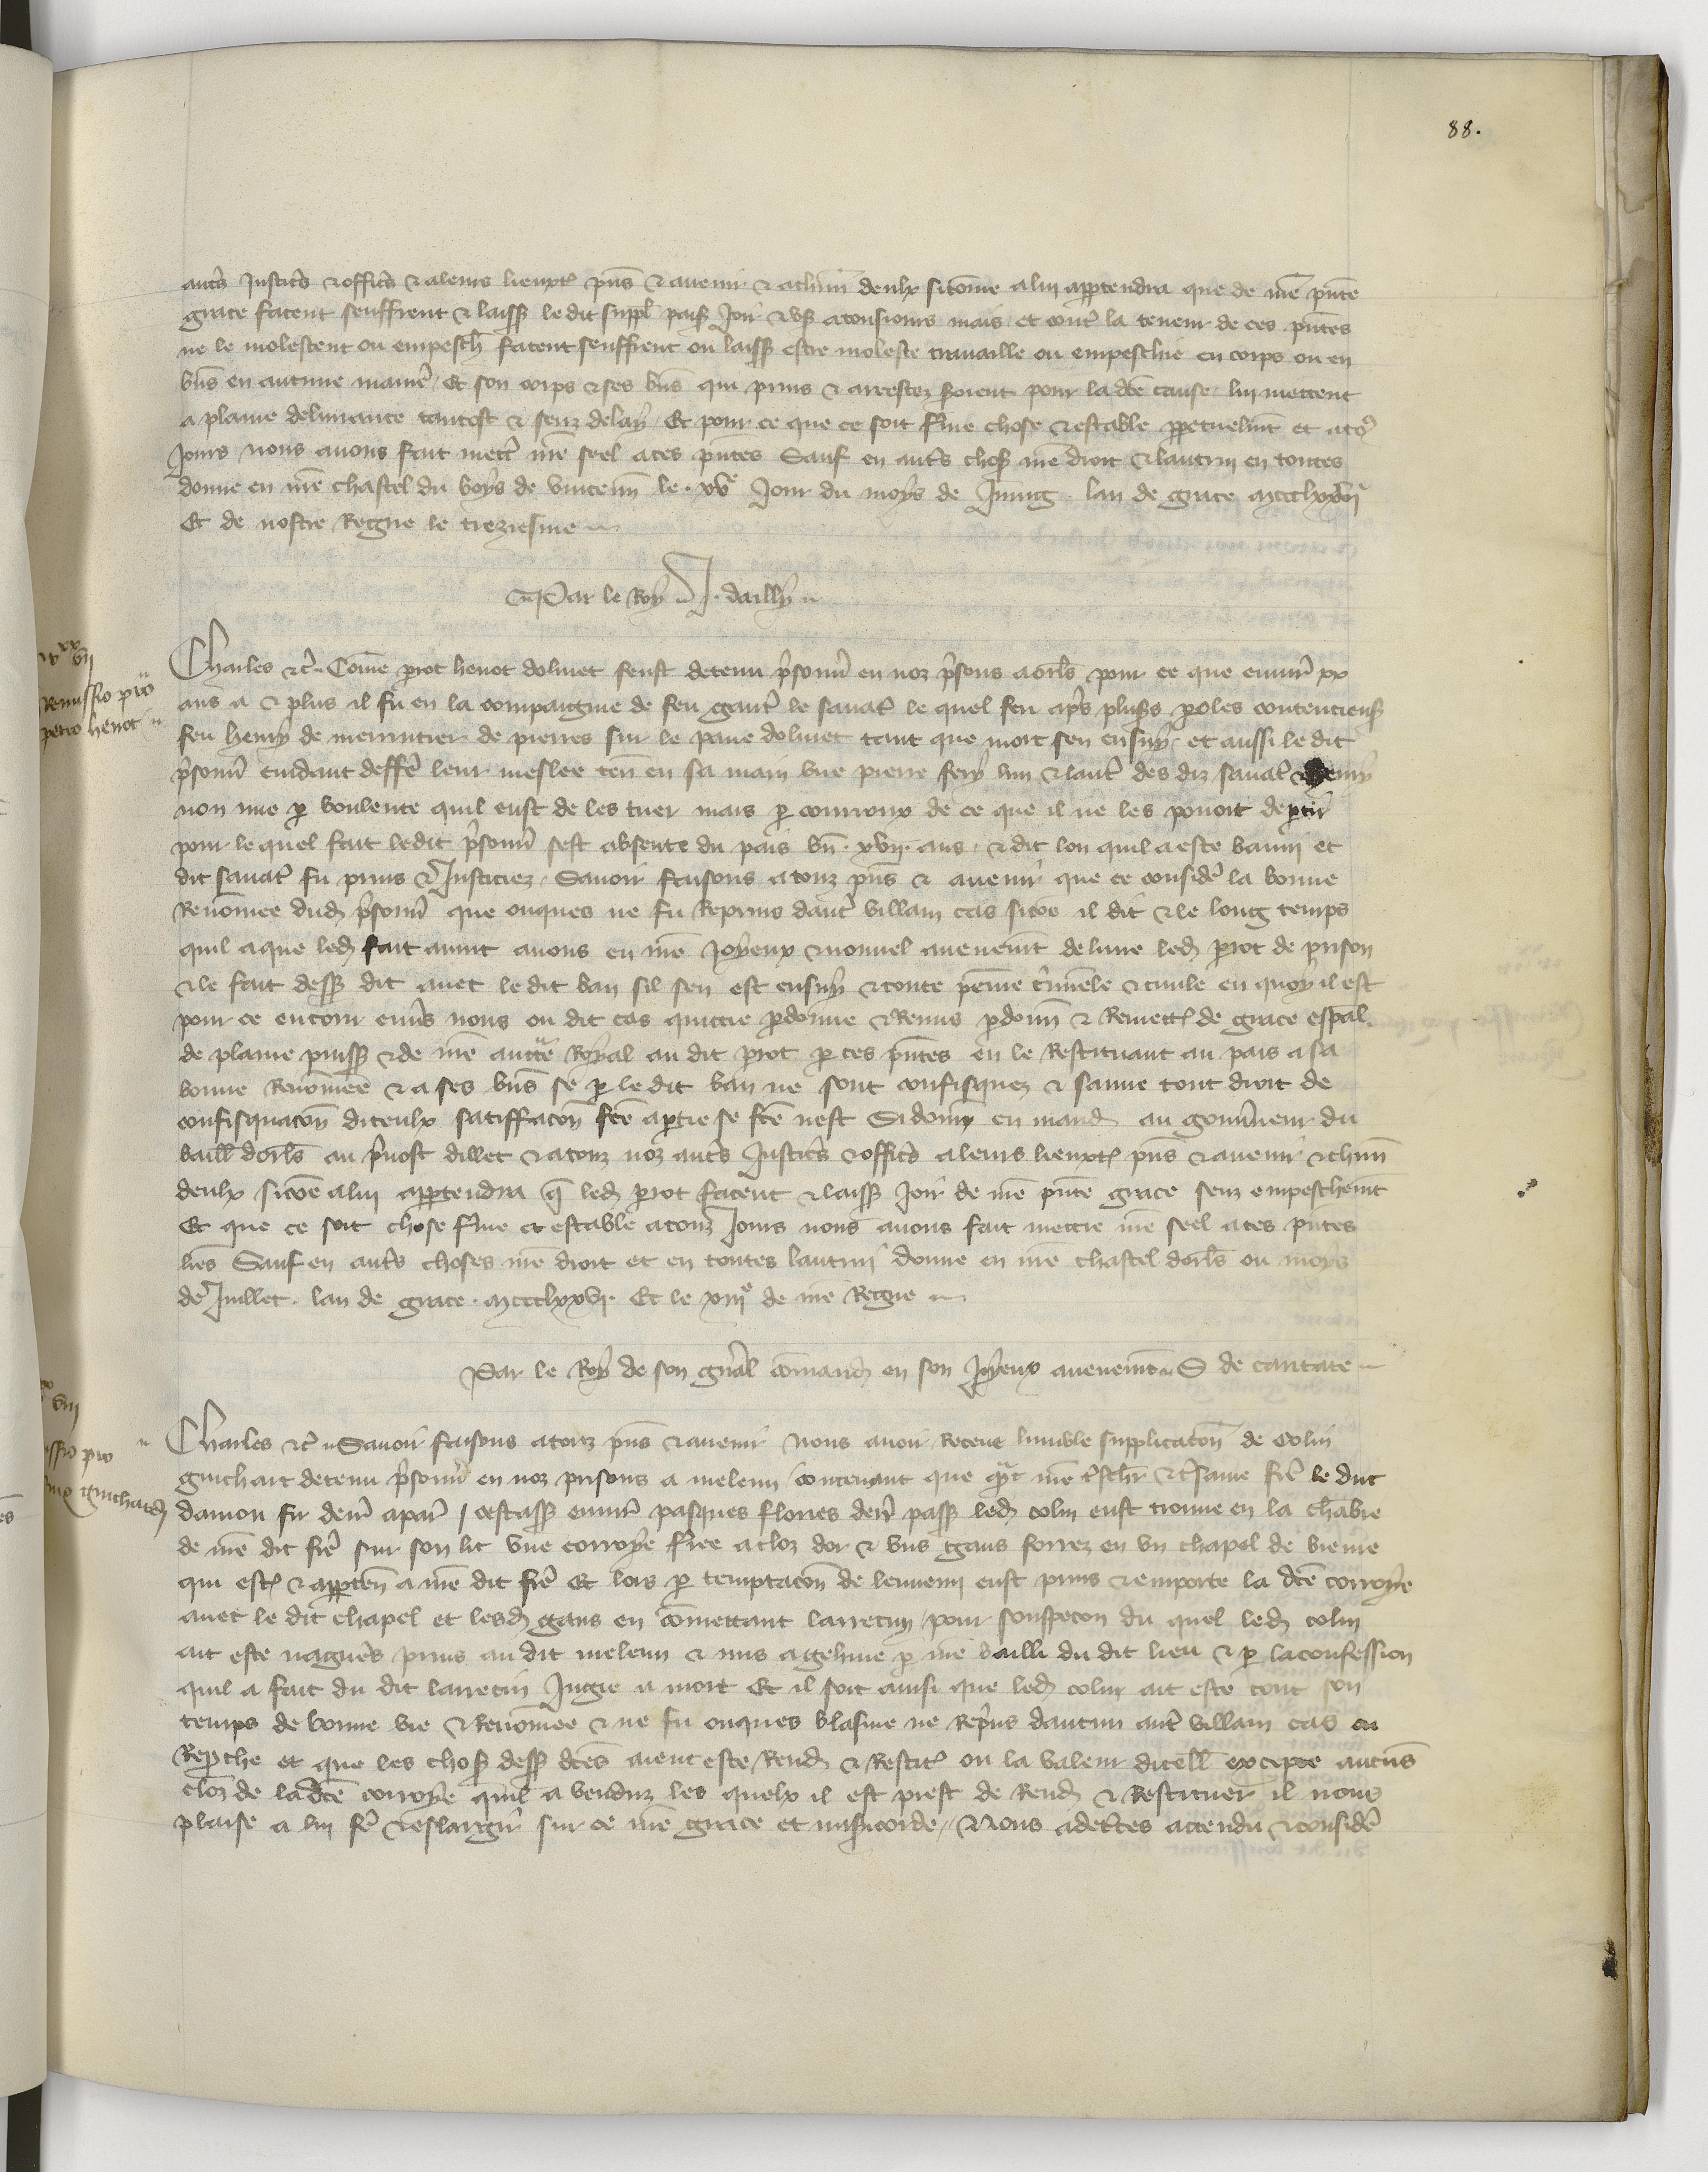 88.
autres Justic̃s & offic̃s & a leurs lieuxt̃ p̃ns & avenir & a chũn deulx sicom̃e a lui app̃tendra que de nr̃e p̃nte
grace facent seuffrent & laiss̃ le dit suppl̃ paiss̃ Joir & us̃ a tousiours mais et cont̃ la teneur de ces p̃ntes
ne le molestent ou empesch̃ facent seuffrent ou laiss̃ estre moleste travaille ou empeschie en corps ou en
biẽs en aucune manier̃ / Et son corps & ses biẽs qui prins & arrestez seroient pour la dc̃e cause lui mettent
a plaine delivrance tantost & senz delay / Et pour ce que ce soit ferme chose & estable pp̃etuelm̃t et a to9
Jours nous avons fait mett̃ nr̃e seel a ces p̃ntes Sauf en aut̃s chos̃ nr̃e droit & lautrui en toutes
donne en nr̃e chastel du boys de vincenñ le xve Jour du moys de Juing lan de grace mccclxxvi
Et de nostre Regne le treziesme
Par le Roy J. dailly
iiiixx vii
Remissio pro
petro henot
Charles &c̃ Com̃e p̃rot henot dolivet feust detenu p̃sonñ en noz p̃sons a orl̃s pour ce que envir̃ xx
ans a & plus il fu en la compaignie de feu gaut̃ le savat̃ le quel feu ap̃s plus̃s p̃oles contencieus̃
feu henry de menuntier de pierres sur le pave dolivet tant que mort sen ensuy / et aussi le dit
p̃sonñ cuidant deffer̃ leur meslee teñ en sa main une pierre fery lun & laut̃ des diz savat̃ & henry
non mie p̃ voulente quil eust de les tuer mais p̃ courroux de ce que il ne les povoit dep̃tir
pour le quel fait ledit p̃sonñ sest absente du pais bñ xvii ans & dit lon quil a este banni et
dit savat̃ fu prins & Justiciez Savoir faisons a touz p̃ns & avenir que ce consider̃ la bonne
Renom̃ee dud̃ p̃sonñ que onques ne fu Reprins daut̃ villain cas sicõe il dit & le long temps
quil a que led̃ fait avint avons en nr̃e Joyeux & nouvel avenem̃t delivre led̃ p̃rot de prison
& le fait dess̃ dit avec le dit ban sil sen est ensuy & toute peine c̃minele & civile en quoy il est
pour ce encouru enṽs nous ou dit cas quictie p̃donne & Remis p̃donñ & Remett̃ de grace esp̃al
de plaine puiss̃ & de nr̃e auct̃te Royal au dit p̃rot p̃ ces p̃ntes en le Restituant au pais a sa
bonne Renom̃ee & a ses biẽs se p̃ le dit ban ne sont confisquez & sauve tout droit de
confisquacõn diceulx satiffacõn fc̃e a p̃tie se fc̃e nest Si donñ en mand̃ au gouv̾neur du
baill̃ dorl̃s au p̃vost dillec & a touz noz aut̃s Justic̃s & offic̃s a leurs lieuxt̃ p̃ns & avenir & chũn
deulx sicõe a lui app̃tendra q̃ led̃ p̃rot facent & laiss̃ Joir de nr̃e p̃nte grace senz empeschem̃t
Et que ce soit chose ferme et estable a touz Jours nous avons fait mettre nr̃e seel a ces p̃ntes
lr̃es Sauf en aut̃s choses nr̃e droit et en toutes lautrui donne en nr̃e chastel dorl̃s ou moys
de Juillet lan de grace mccclxxvi Et le xiiie de nr̃e Regne
Par le Roy de son gñal com̃and̃ en son Joyeux avenem̃t S de caritate
viii
ssio pro
guichard̃
Charles &c̃ Savoir faisons a touz p̃ns & avenir Nous avoir Receue humble supplicacõn de colin
guichart detenu p̃sonñ en noz prisons a meleun / contenant que q̃nt nr̃e t̃sch̃r & t̃same fr̃e le duc
daniou fu derñ a paris / cestass̃ envir̃ pasques flories derñ pass̃ led̃ colin eust trouve en la chãbre
de nr̃e dit fr̃e sur son lit une corroye ferree a cloz dor & uns gans forrez en un chapel de bievre
qui est̃ & app̃teñ a nr̃e dit fr̃e Et lors p̃ temptacõn de lennemi eust prins & emporte la dc̃e corroye
avec le dit chapel et lesd̃ gans en com̃ettant larrecin / pour souspecon du quel led̃ colin
ait este nagueres prins au dit meleun & mis a gehine p̃ nr̃e bailli du dit lieu & p̃ la confession
quil a fait du dit larrecin Jugie a mort Et il soit ainsi que led̃ colin ait este tout son
temps de bonne vie & Renom̃ee & ne fu onques blasme ne Rep̃ns daucun aut̃ villain cas ou
Rep̃che et que les chos̃ dess̃ dc̃es aient este Rend̃ & Restit̃ ou la valeur dicell̃ excepte aucuñs
cloz de la dc̃e corroye quil a venduz les quelx il est prest de Rend̃ & Restituer il nous
plaise a lui fer̃ & eslargir sur ce nr̃e grace et mis̃icorde // Nous adec̃tes attendu & consider̃